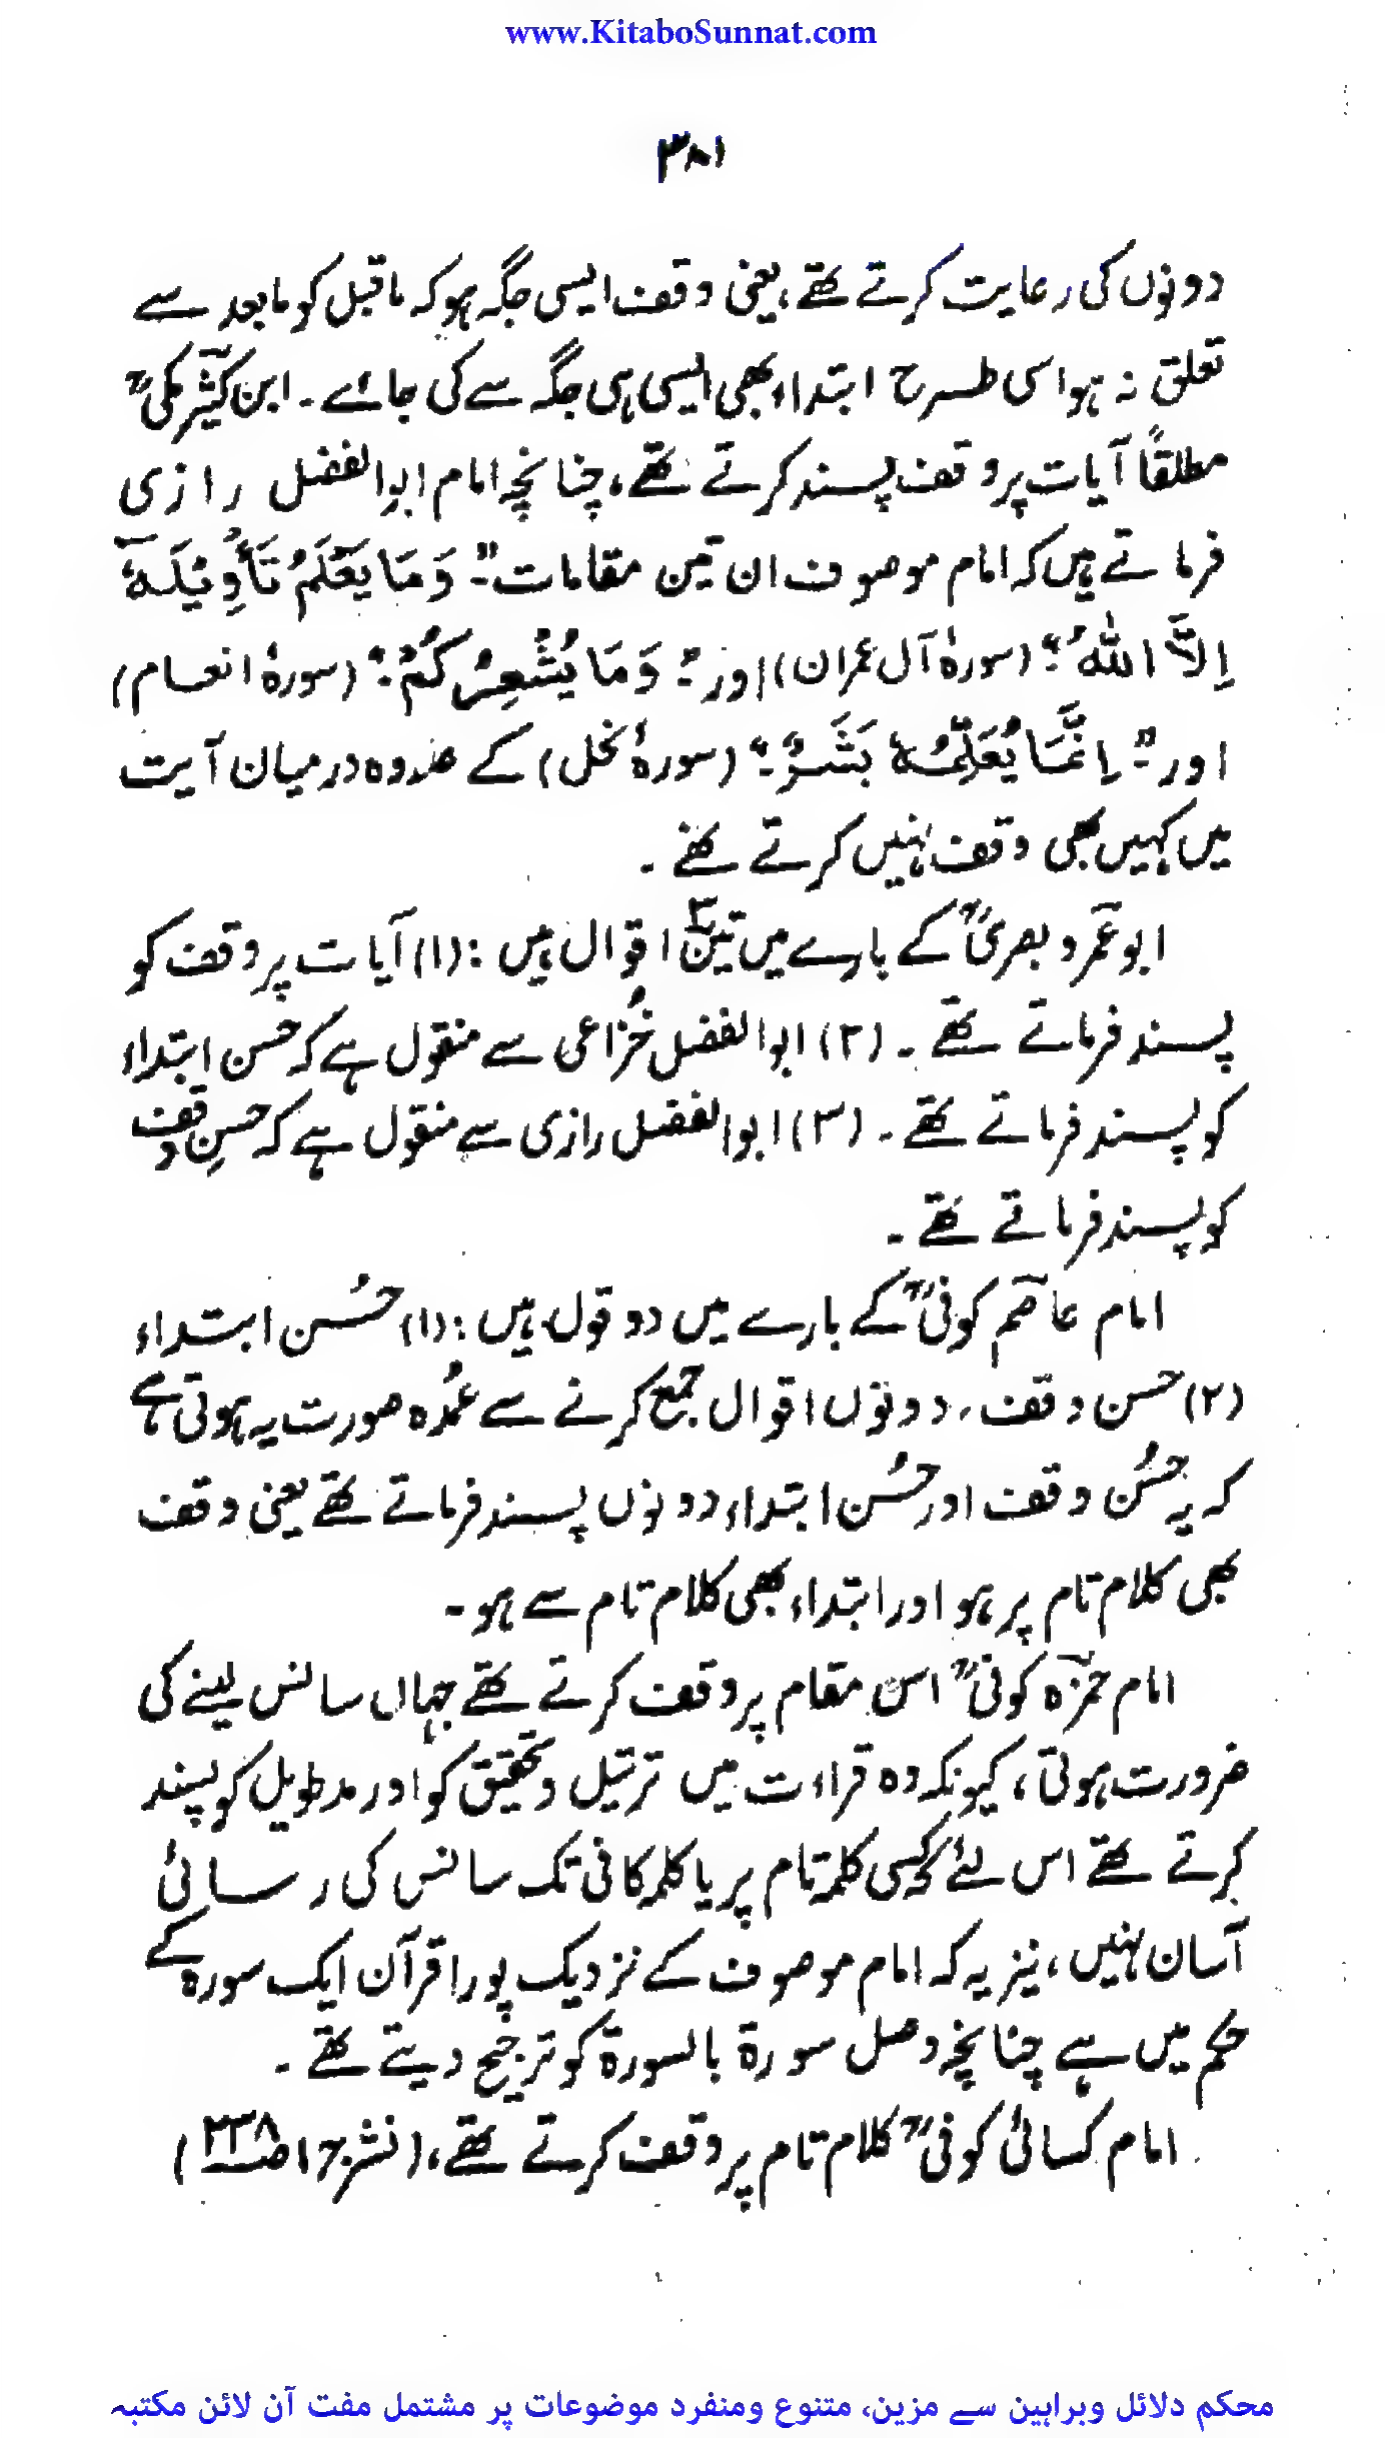 www.KitaboSunnat.com
۳۸۱
دونوں کی رعایت کرتے تھے، یعنی وقف ایسی جگہ ہو کہ ماقبل کو مابعد سے
تعلق نہ ہو اسی طرح ابتداء بھی ایسی ہی جگہ سے کی جائے۔ ابن کثیر مکیؒ
مطلقاً آیات پر وقف پسند کرتے تھے، چنانچہ امام ابوالفضل رازی
فرماتے ہیں کہ امام موصوف ان تین مقامات "۔ وَمَا يَعْلَمُ تَأْوِيْلَهٗ
اِلَّا اللّٰهُ ؛" (سورۂ آل عمران) اور "۔ وَمَا يُشْعِرُكُمْ ؛" (سورۂ انعام)
اور "۔ اِنَّمَا يُعَلِّمُهٗ بَشَرٌ ؛" (سورۂ نحل) کے علاوہ درمیان آیت
میں کہیں بھی وقف نہیں کرتے تھے ۔
ابو عمرو بصریؒ کے بارے میں تین۳ اقوال ہیں : (۱) آیات پر وقف کو
پسند فرماتے تھے ۔ (۲) ابوالفضل خُزاعی سے منقول ہے کہ حسن ابتداء
کو پسند فرماتے تھے ۔ (۳) ابوالفضل رازی سے منقول ہے کہ حسنِ وقف
کو پسند فرماتے تھے ۔
امام عاصم کوفیؒ کے بارے میں دو قول ہیں : (۱) حُسن ابتداء
(۲) حسن وقف، دونوں اقوال جمع کرنے سے عمُدہ صورت یہ ہوتی ہے
کہ یہ حُسُن وقف اور حُسُن ابتداء دونوں پسند فرماتے تھے یعنی وقف
بھی کلام تام پر ہو اور ابتداء بھی کلام تام سے ہو ۔
امام حمزہ کوفیؒ اس مقام پر وقف کرتے تھے جہاں سانس لینے کی
ضرورت ہوتی، کیونکہ وہ قراءت میں ترتیل و تحقیق کو اور مد طویل کو پسند
کرتے تھے اس لئے کہ کسی کلمہ تام پر یا کلمہ کافی تک سانس کی رسائی
آسان نہیں، نیز یہ کہ امام موصوف کے نزدیک پورا قرآن ایک سورہ کے
حکم میں ہے چنانچہ وصل سورۃ بالسورۃ کو ترجیح دیتے تھے ۔
امام کسائی کوفیؒ کلام تام پر وقف کرتے تھے، (نشر ج ۱ ص۲۳۸)
محکم دلائل وبراہین سے مزین، متنوع ومنفرد موضوعات پر مشتمل مفت آن لائن مکتبہ